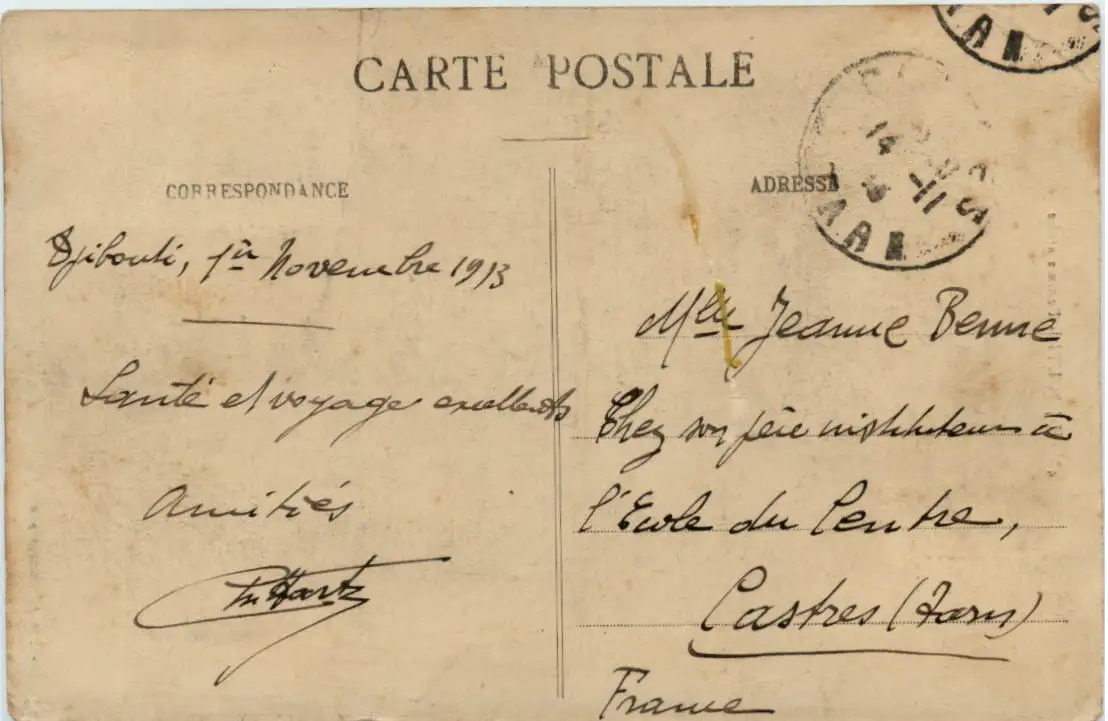 CARTE POSTALE
CORRESPONDANCE
ADRESSE
Djibouti, 1er Novembre 1913
Santé et voyage excellents
Amitiés
Mlle Jeanne Benne
Chez son père instituteur à
l'Ecole du Centre,
Castres (Tarn)
France
14
11
TARN